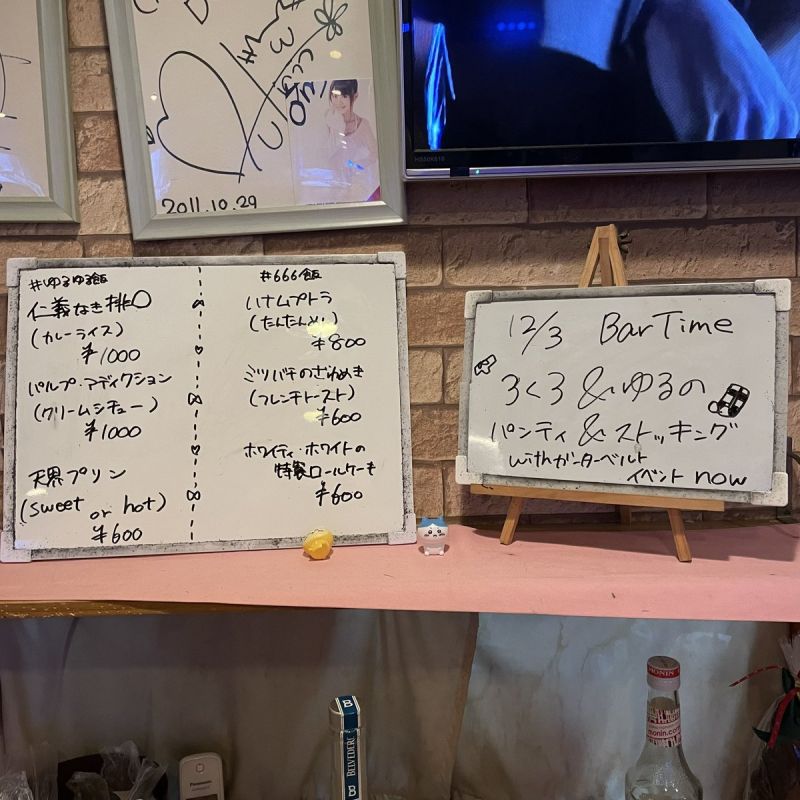 2011.10.29
HS50K618
#ゆるゆる飯
仁義なき排〇
(カレーライス)
¥1000
パルプ・アディクション
(クリームシチュー)
¥1000
天界プリン
(sweet or hot)
¥600
#666飯
ハナムプトラ
(たんたんめん)
¥800
ミツバチのざわめき
(フレンチトースト)
¥600
ホワイティ・ホワイトの
特製ロールケーキ
¥600
12/3 Bar Time
3く3&ゆるの
パンティ&ストッキング
withガーターベルト
イベント now
MONIN
monin.com
BELVEDERE
B
Panasonic